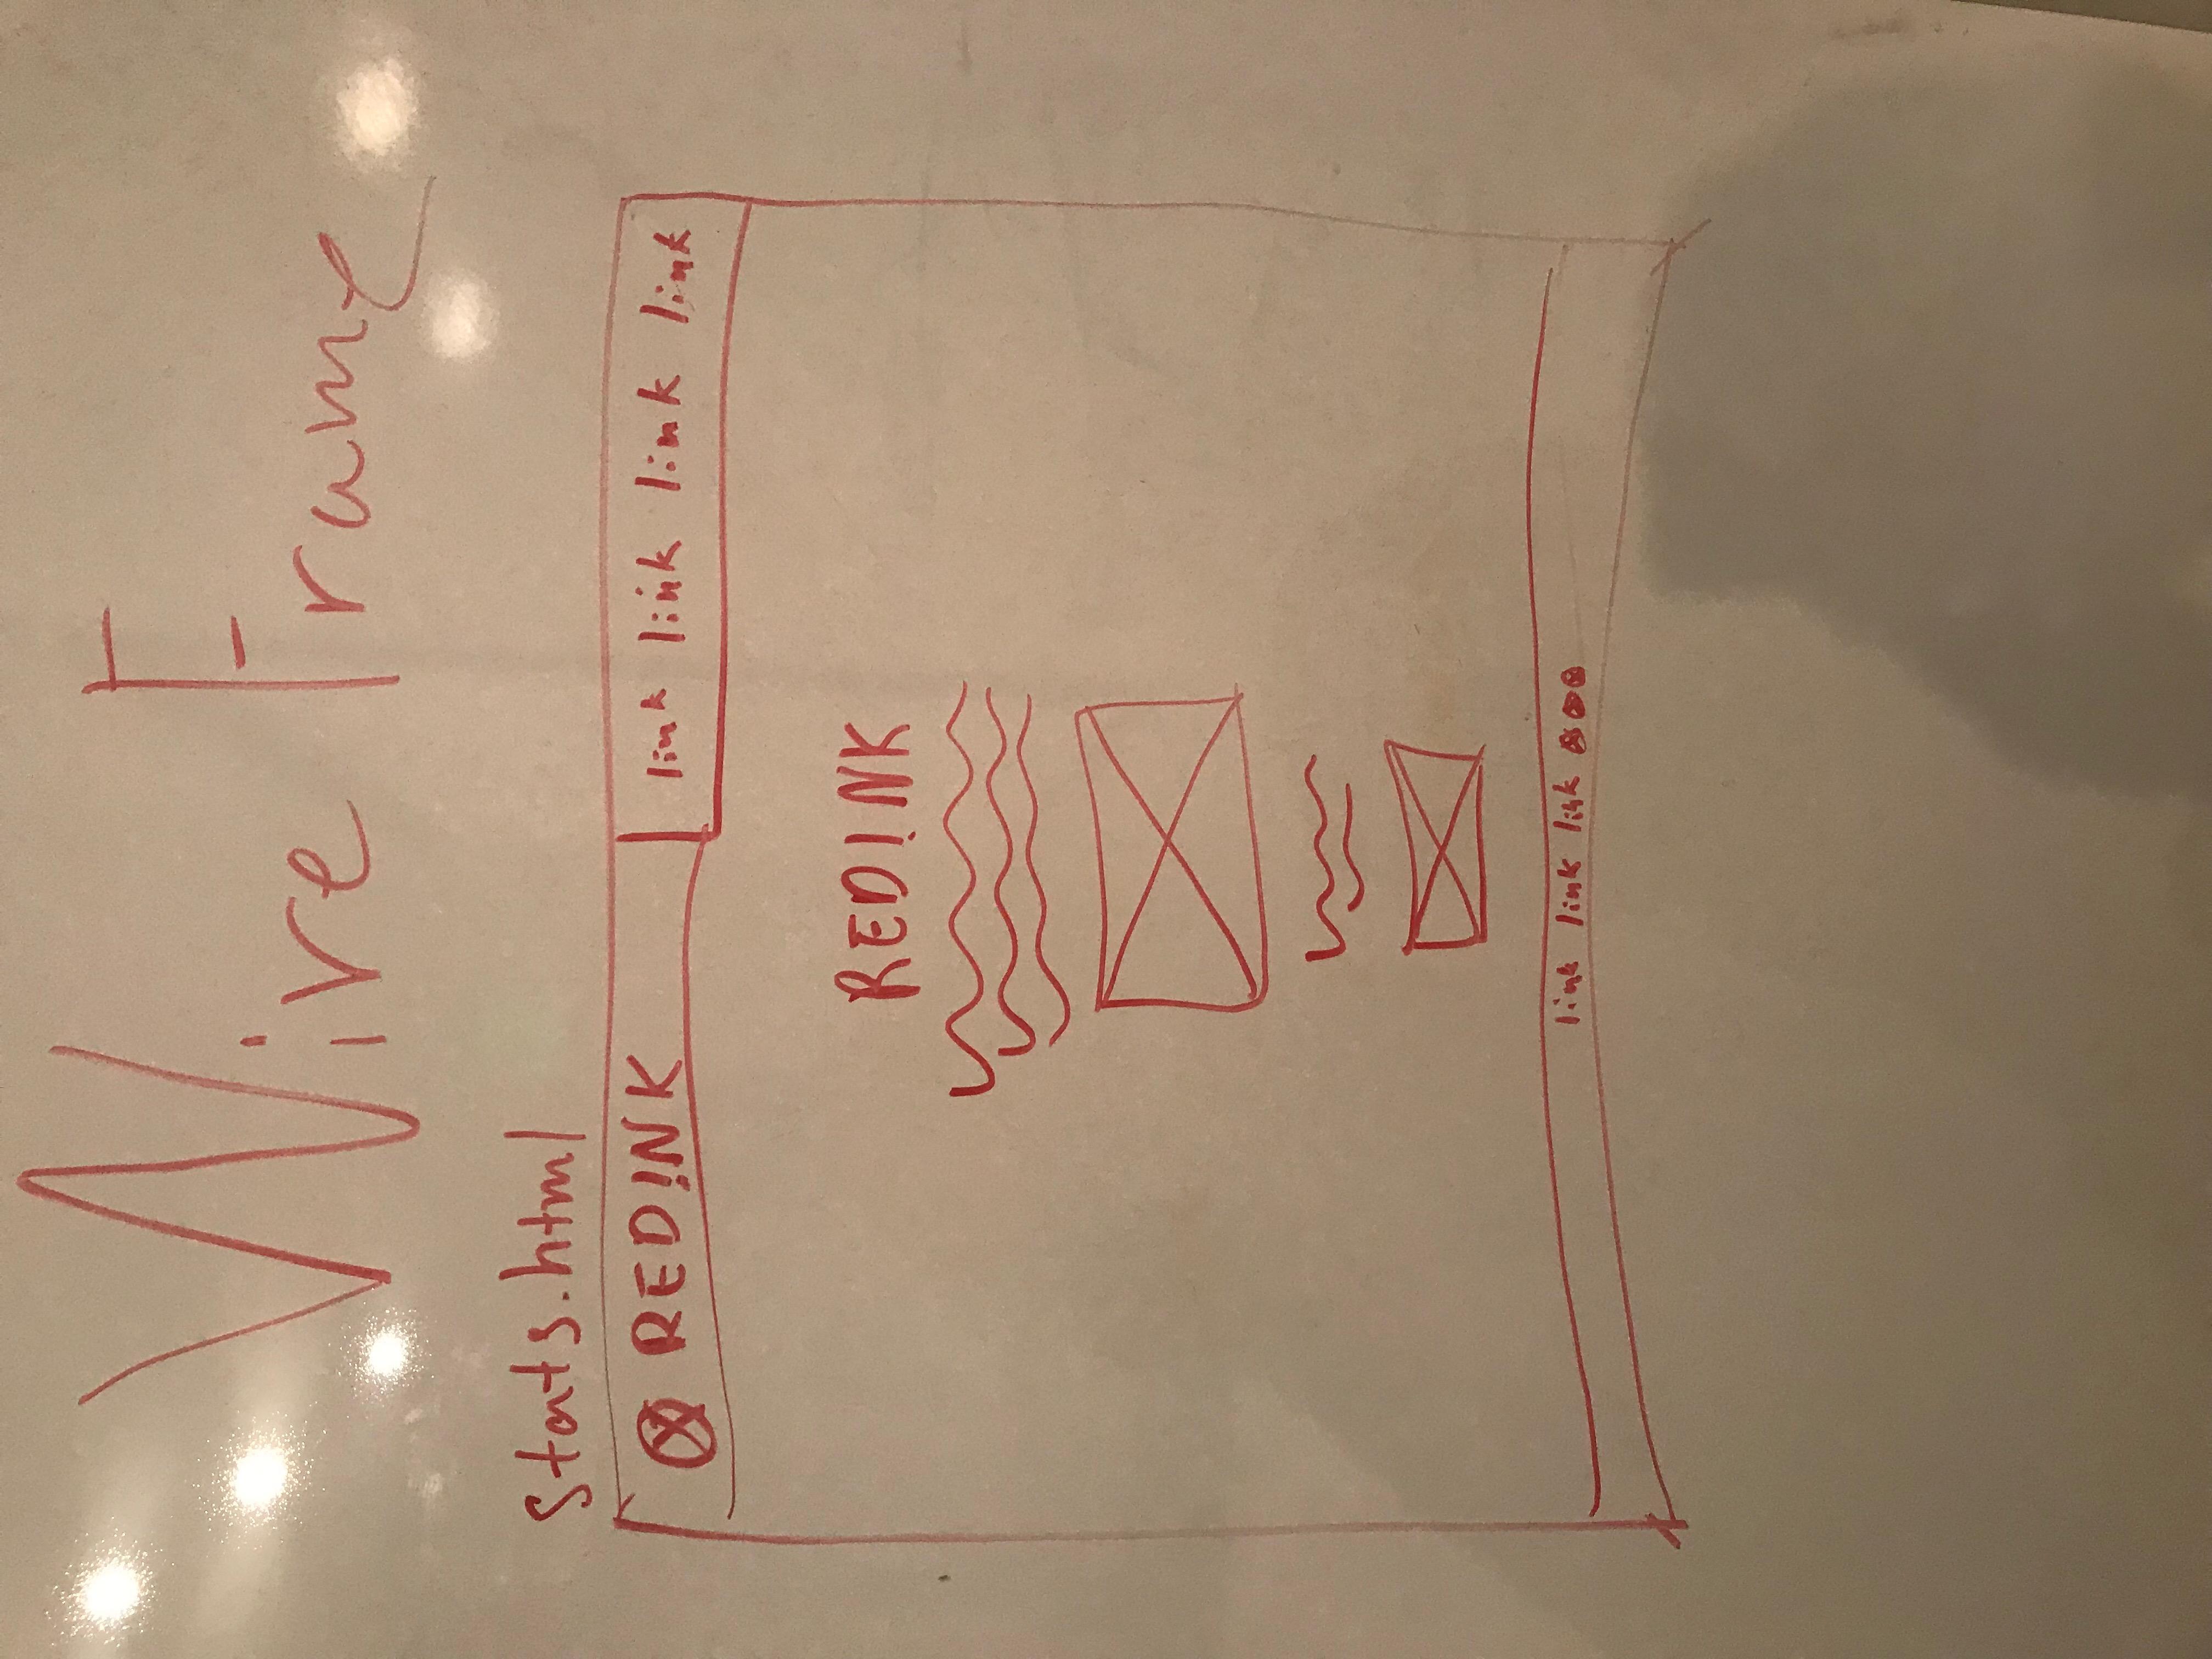 Wire Frame
stats.html
RED!NK link link link link
RED!NK
link link link